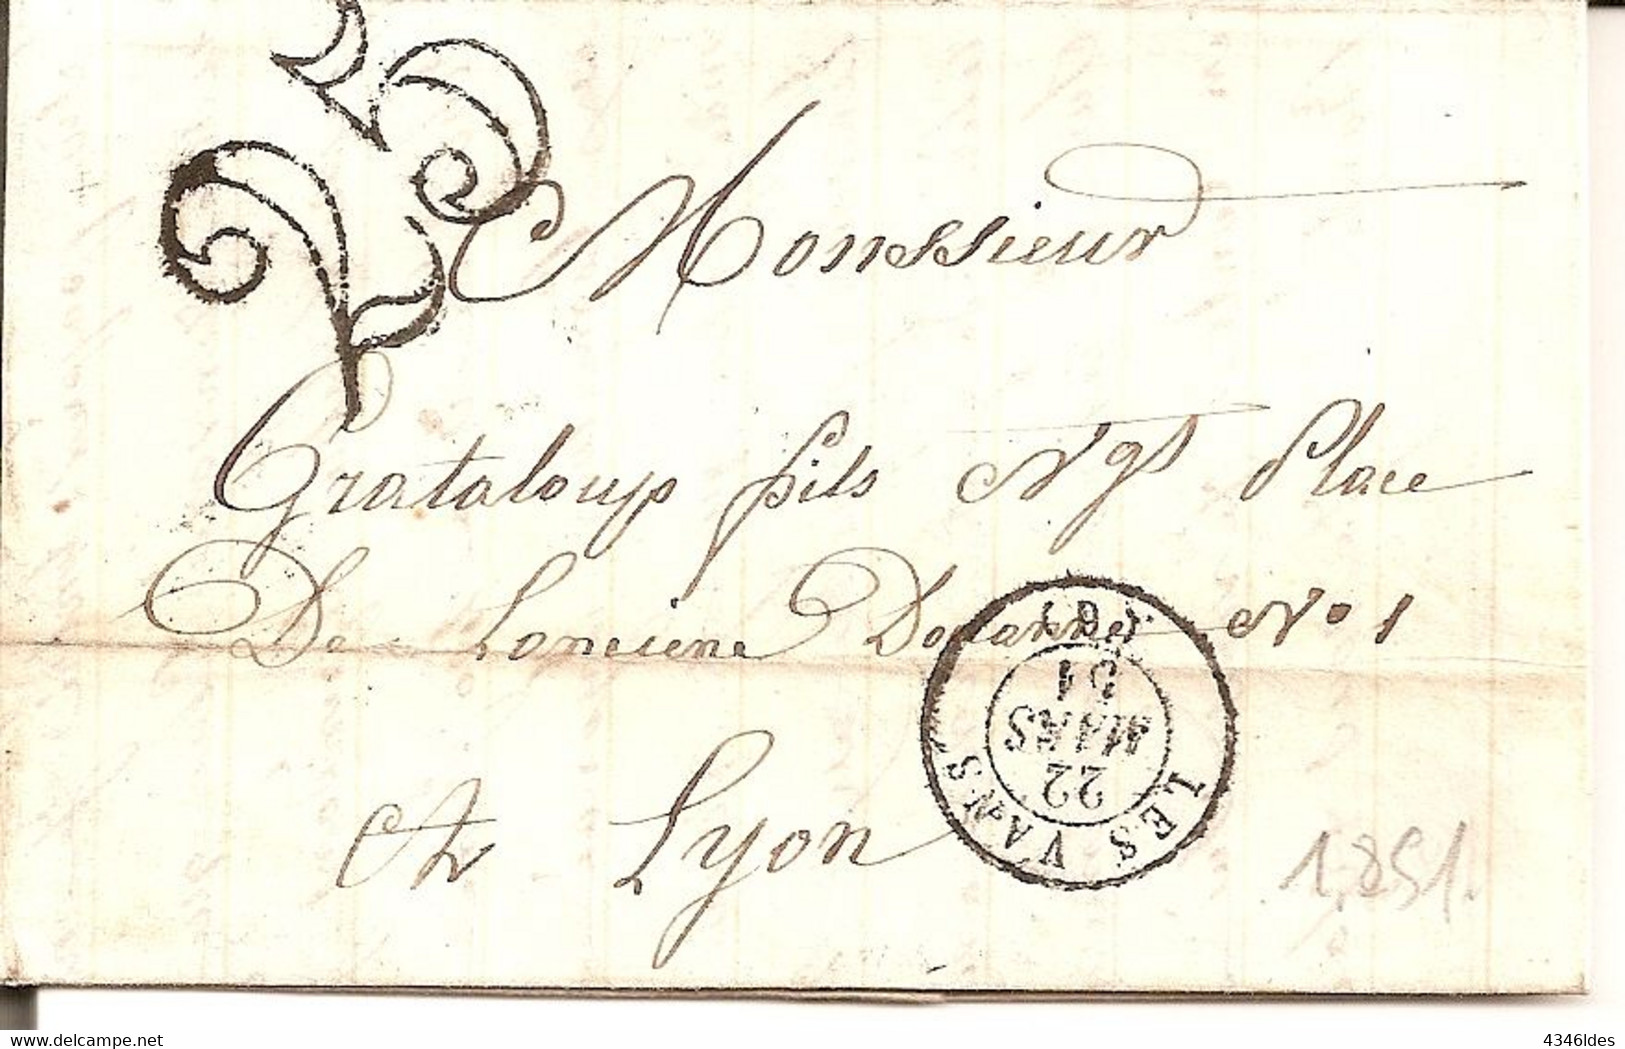 25
Monsieur
Grataloup fils Ngt Place
De Lonciene Douanne No 1
A Lyon
LES VANS
22
MARS
51
(6)
1,851.
delcampe.net
4346ldes